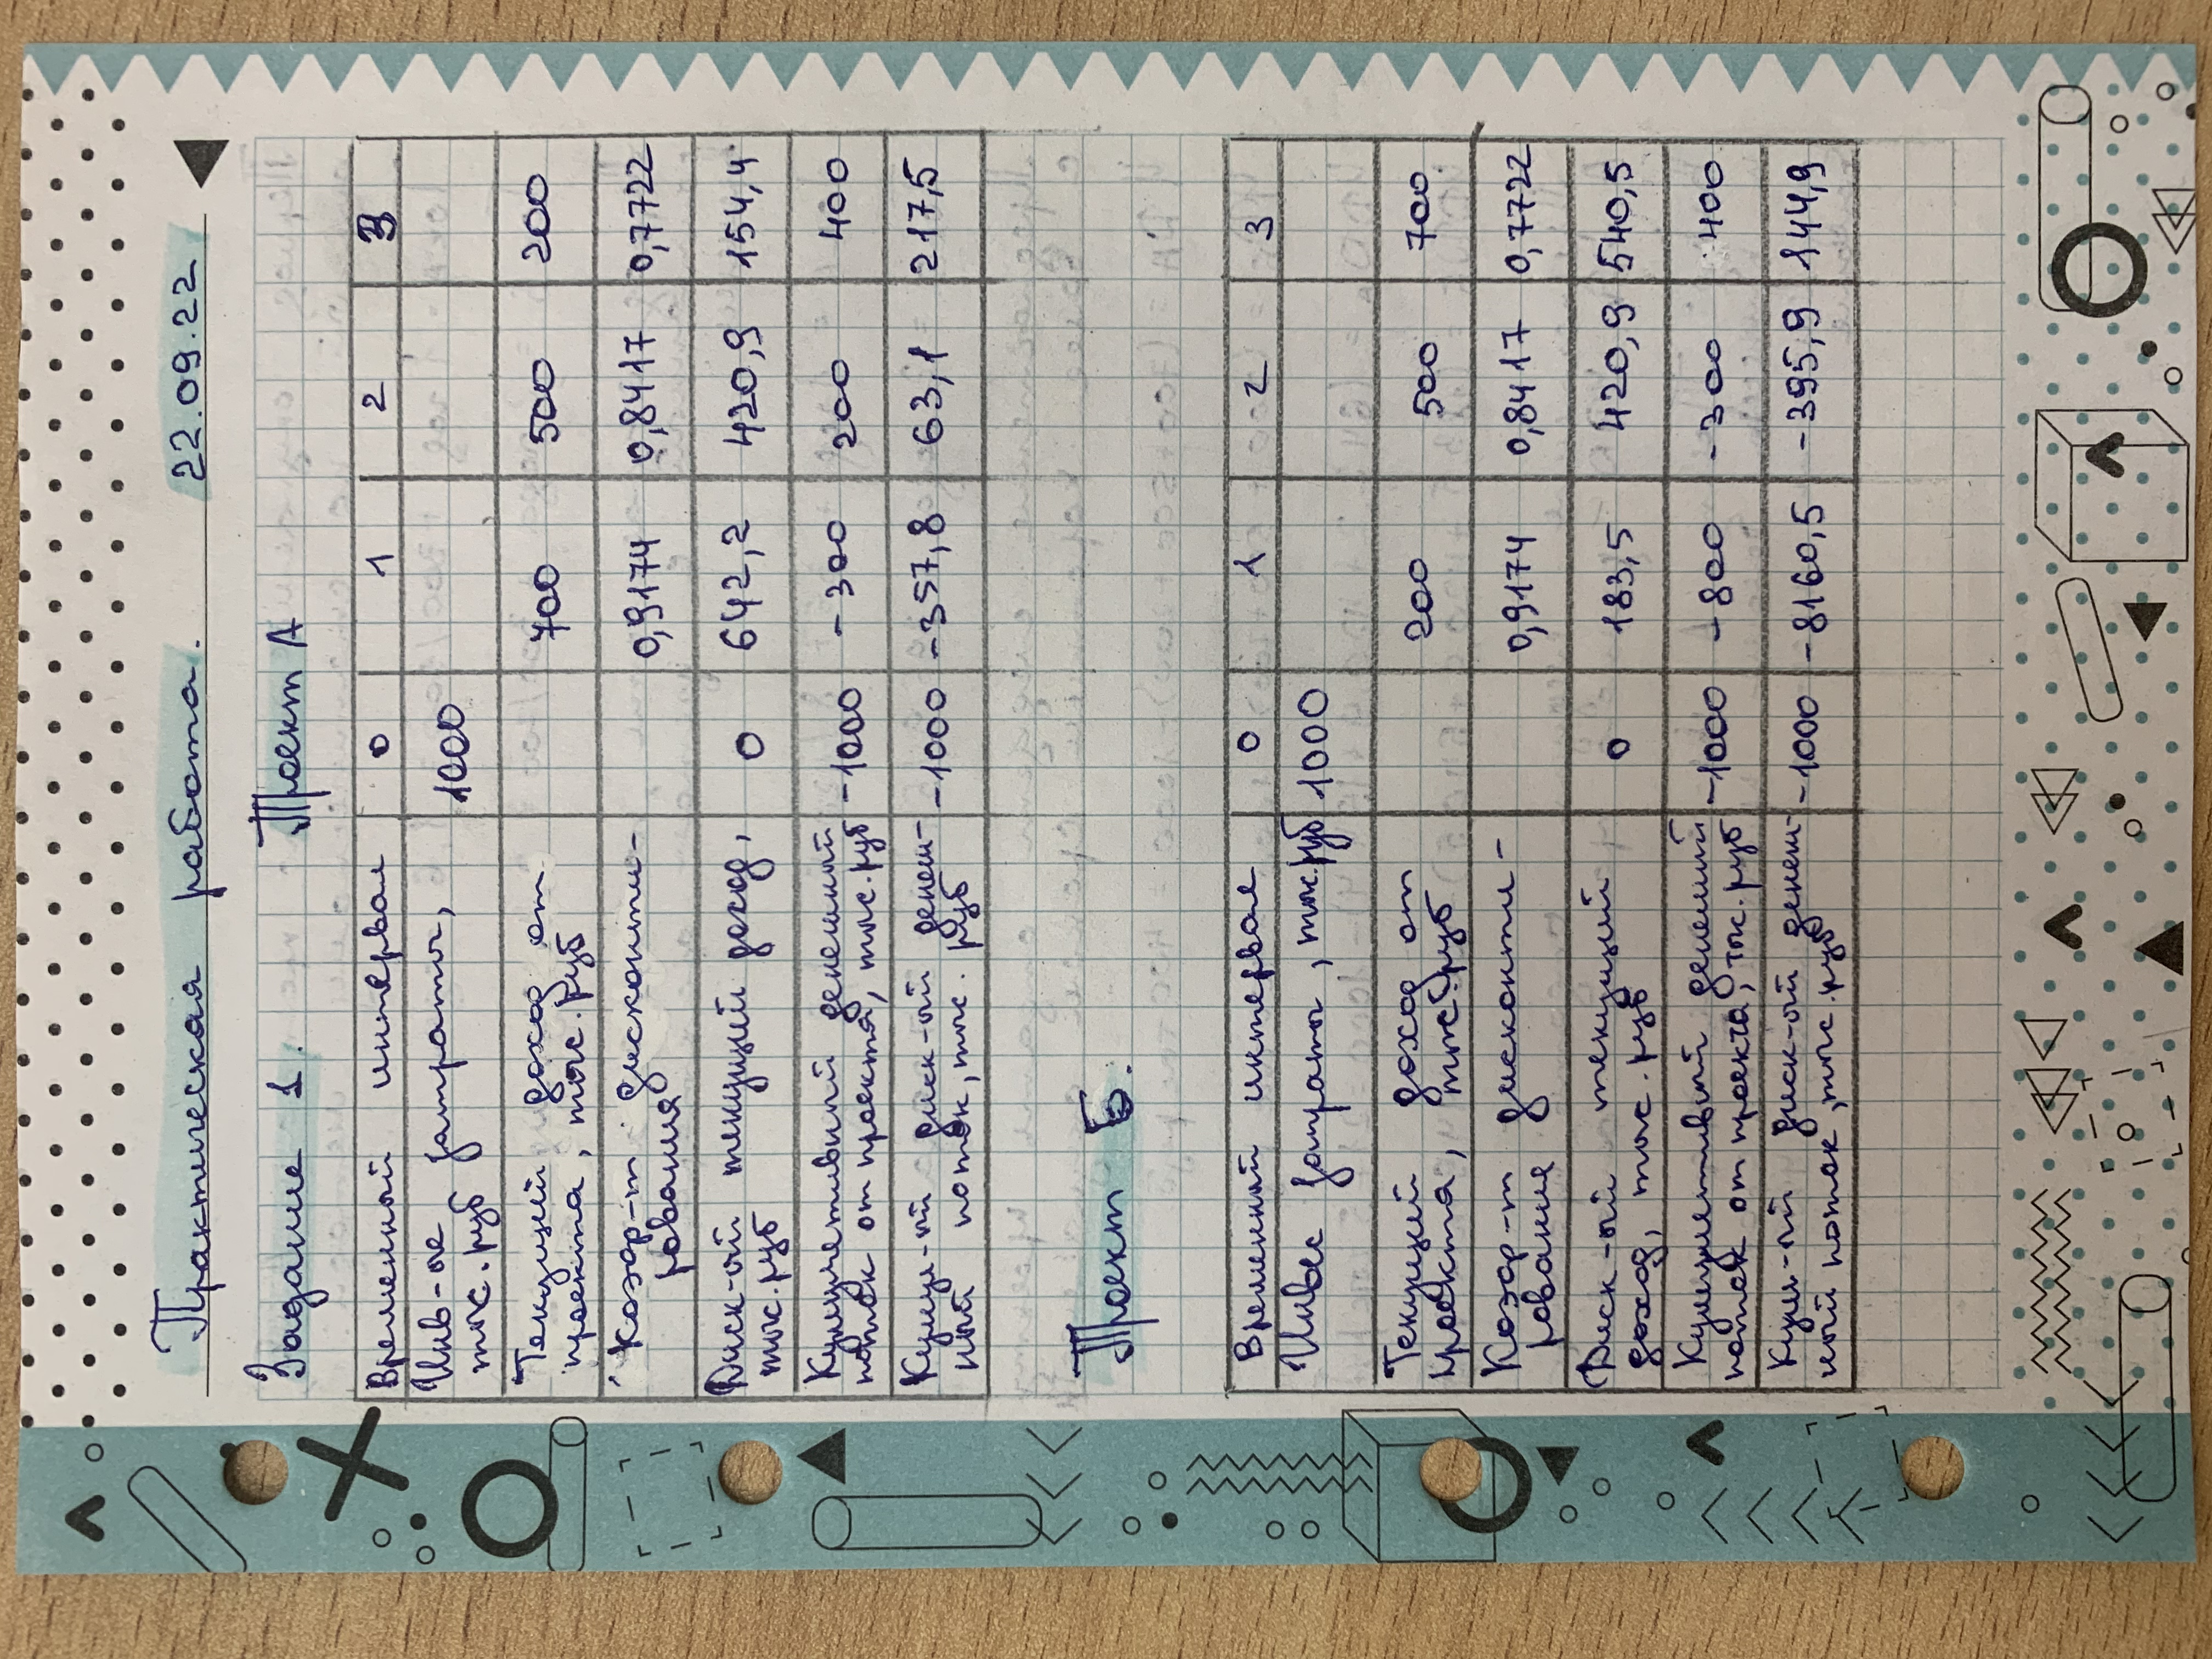 Практическая работа. 22.09.22
Задание 1. Проект А
Временный интервал 0 1 2 3
Инв-ые затраты,
тыс. руб 1000
Текущий доход от
проекта, тыс. руб 700 500 200
Коэф-т дисконти-
рования 0,9174 0,8417 0,7722
Диск-ый текущий доход,
тыс. руб 0 642,2 420,9 154,4
Кумулятивный денежный
поток от проекта, тыс. руб -1000 -300 200 400
Кумул-ый диск-ый денеж-
ный поток, тыс. руб -1000 -357,8 63,1 217,5
Проект Б.
Временный интервал 0 1 2 3
Инвес затраты, тыс. руб 1000
Текущий доход от
проекта, тыс. руб 200 500 700
Коэф-т дисконти-
рования 0,9174 0,8417 0,7722
Диск-ый текущий
доход, тыс. руб 0 183,5 420,9 540,5
Кумулятивный денежный
поток от проекта, тыс. руб -1000 -800 -300 400
Кум-ый диск-ый денеж-
ный поток, тыс. руб -1000 -8160,5 -395,9 144,9